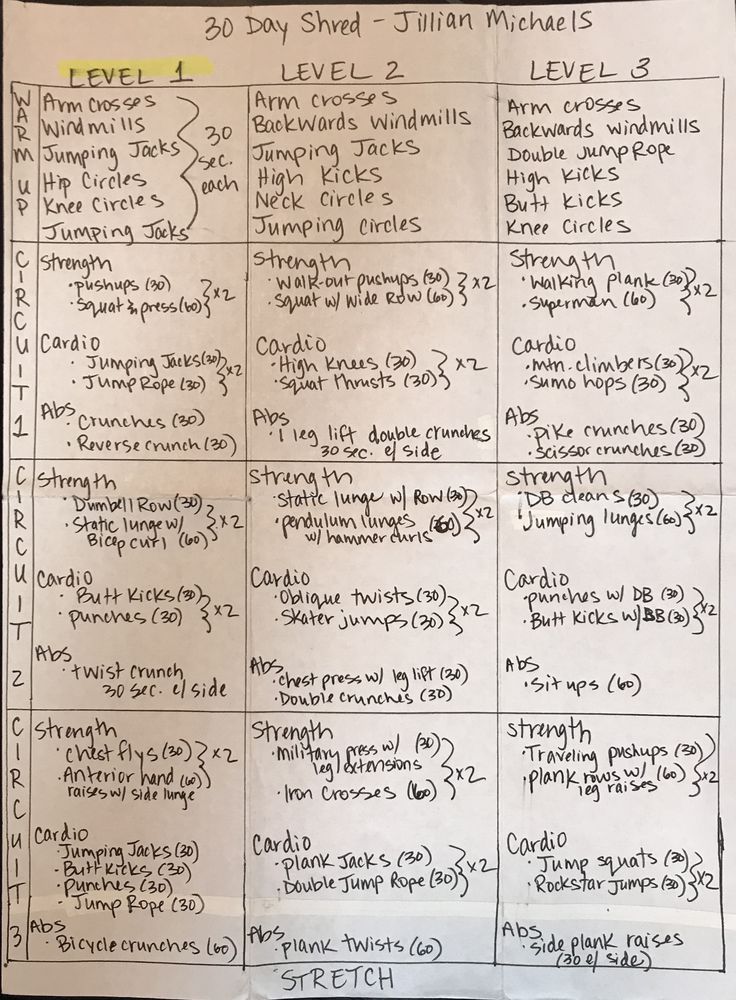 30 Day Shred - Jillian Michaels
LEVEL 1
WARM UP
Arm crosses
Windmills
Jumping Jacks
Hip Circles
Knee Circles
Jumping Jacks
30 sec. each
CIRCUIT 1
Strength
· pushups (30)
· Squat & press (60) } x2
Cardio
· Jumping Jacks (30)
· Jump Rope (30) } x2
Abs
· Crunches (30)
· Reverse crunch (30)
CIRCUIT 2
Strength
· Dumbell Row (30)
· Static lunge w/
Bicep curl (60) } x2
Cardio
· Butt Kicks (30)
· punches (30) } x2
Abs
· twist crunch
30 sec. e/ side
CIRCUIT 3
Strength
· chest flys (30)
· Anterior hand (60) } x2
raises w/ side lunge
Cardio
· Jumping Jacks (30)
· Butt Kicks (30)
· Punches (30)
- Jump Rope (30)
Abs
· Bicycle crunches (60)
LEVEL 2
Arm crosses
Backwards windmills
Jumping Jacks
High Kicks
Neck Circles
Jumping circles
Strength
· Walk-out pushups (30)
· Squat w/ wide Row (60) } x2
Cardio
· High Knees (30)
· squat thrusts (30) } x2
Abs
· 1 leg lift double crunches
30 sec. e/ side
Strength
· static lunge w/ Row (30)
· pendulum lunges (60)
w/ hammer curls } x2
Cardio
· Oblique twists (30)
· Skater jumps (30) } x2
Abs
· chest press w/ leg lift (30)
· Double crunches (30)
Strength
· Military press w/ (30)
leg extensions
· Iron Crosses (60) } x2
Cardio
· plank Jacks (30)
· Double Jump Rope (30) } x2
Abs
· plank twists (60)
LEVEL 3
Arm crosses
Backwards windmills
Double Jump Rope
High Kicks
Butt Kicks
Knee Circles
Strength
· Walking plank (30)
· superman (60) } x2
Cardio
· mtn. climbers (30)
· sumo hops (30) } x2
Abs
· pike crunches (30)
· scissor crunches (30)
Strength
· DB cleans (30)
· Jumping lunges (60) } x2
Cardio
· punches w/ DB (30)
· Butt Kicks w/ DB (30) } x2
Abs
· sit ups (60)
Strength
· Traveling pushups (30)
· plank rows w/ (60)
leg raises } x2
Cardio
· Jump squats (30)
· Rockstar Jumps (30) } x2
Abs
· side plank raises
(30 e/ side)
STRETCH